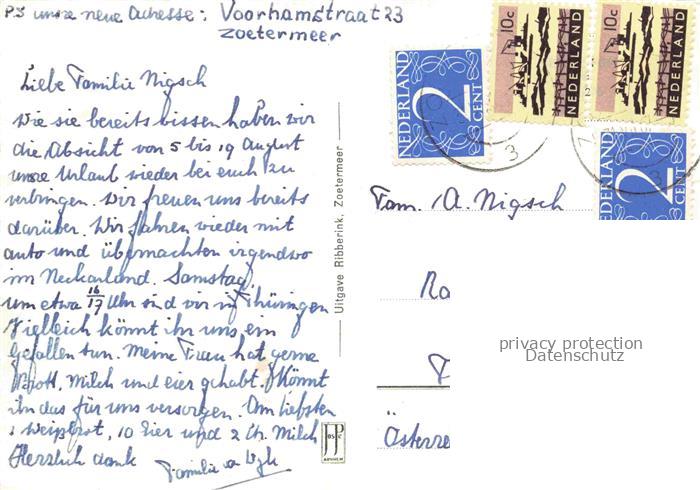 PS unsre neue Adresse: Voorhamstraat 23
Zoetermeer
Liebe Familie Nigsch
Wie sie bereits wissen haben wir
die Absicht von 5 bis 19 August
unsre Urlaub wieder bei euch zu
verbringen. Wir freuen uns bereits
darüber. Wir fahren wieder mit
auto und übernachten irgendwo
im Neckarland. Samstag
um etwa 16/17 Uhr sind wir in Thüringen
Vielleich könnt ihr uns ein
gefallen tun. Meine Frau hat gerne
Brott, Milch und eier gehabt. Könnt
ihr das für uns versorgen. Am liebsten
1 Weißbrot, 10 Eier und 2 Ltr. Milch
Herzlich dank
Familie
Uitgave Ribberink, Zoetermeer
JosPé
ARNHEM
NEDERLAND
2
CENT
10c
NEDERLAND
10c
NEDERLAND
NEDERLAND
2
Fam. A. Nigsch
Ra
Österre
privacy protection
Datenschutz